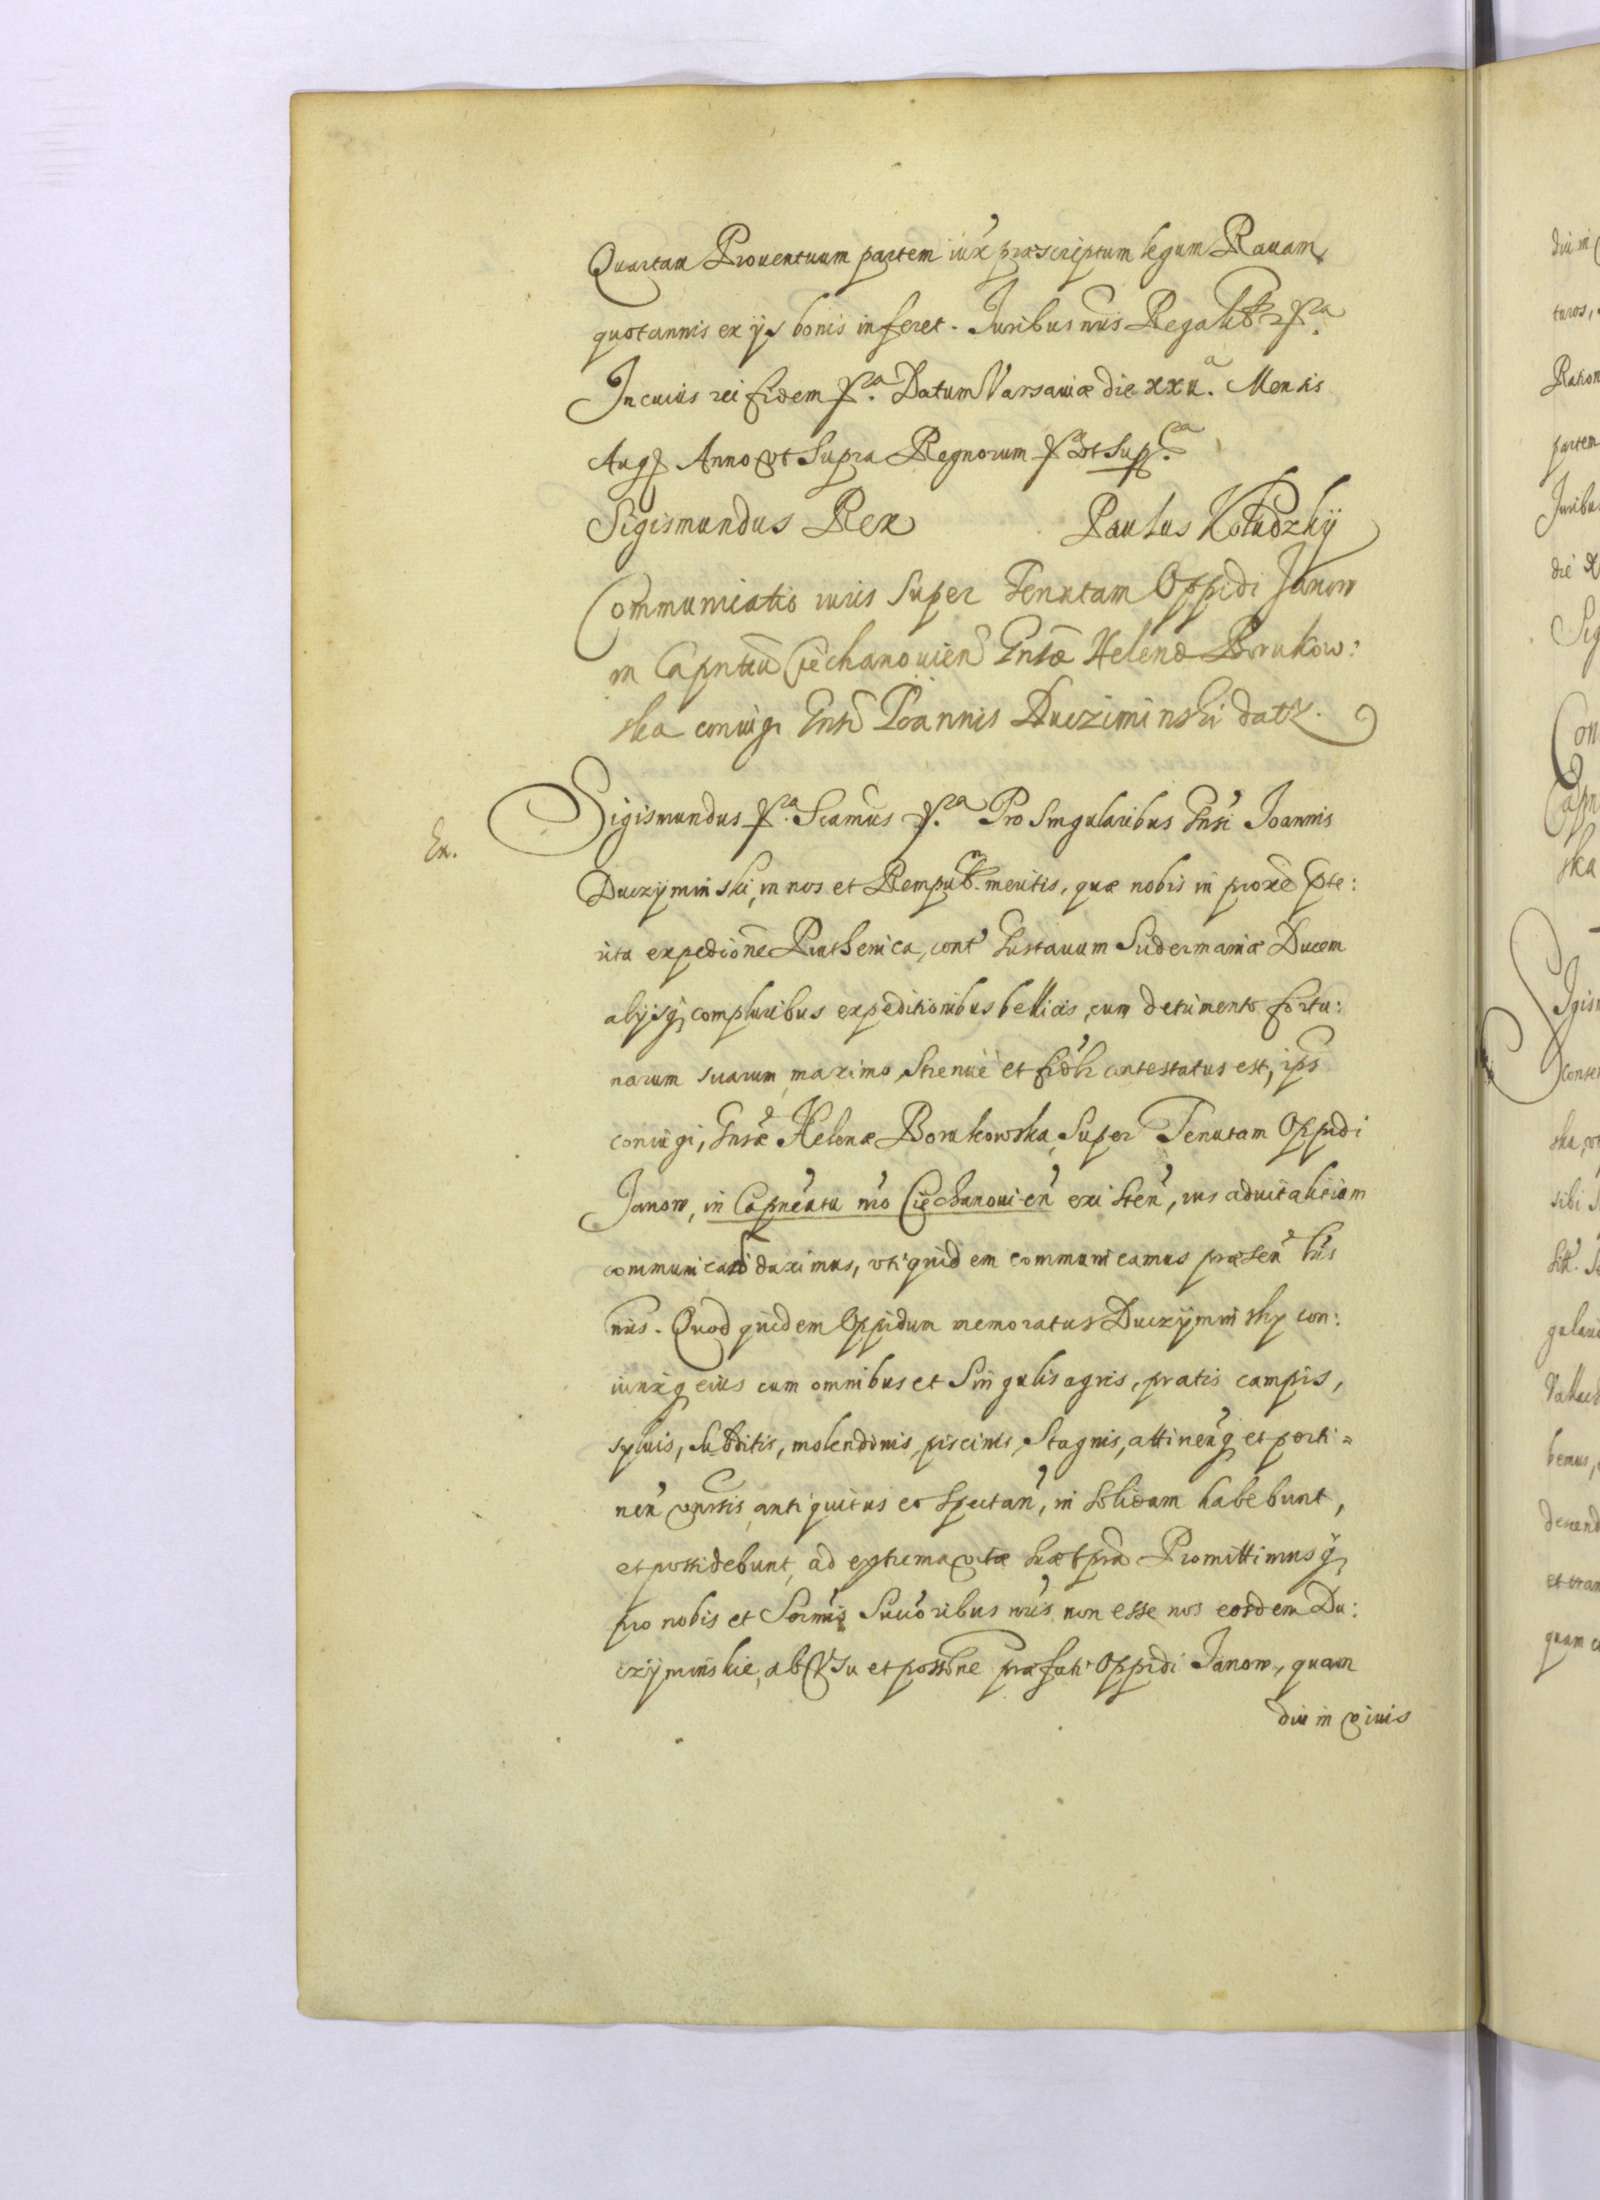 Quartam Prouentuum partem iux præscriptum legum Rauam
quotannis ex ijs bonis inferet. Juribus nris Regalib
In cuius rei fidem &ca. Datum Varsauiæ die xxv.a Mensis
Augi Anno vt supra Regnorum &ca vt supra
Sigismundus Rex Paulus Kołudzky
Communicatio iuris super Tenutam Oppidi Janow
in Capntu Ciechanouien Gnsæ Helenæ Borukow:
ska coniugi Gnsi Joannis Ducziminski datr.
Ex.
Sigismundus &ca. Scamus &ca. Pro singularibus Gnsi Joannis
Duczyminski, in nos et Rempubm. meritis, quæ nobis in proxe pte:
rita expedione Pruthenica, cont Gustauum Sudermaniæ Ducem
alijsq compluribus expeditionibus bellicis, cum detrimento fortu:
narum suarum maximo, strenue et fidlr contestatus est, ips
coniugi, Gnsæ Helenæ Borukowska, super Tenutam Oppidi
Janow, in Capneatu nro Ciechanouien existen, ius aduitalitium
communicand duximus, vti quidem communicamus præsen lris
nris. Quod quidem Oppidum memoratus Duczyminsky con:
iunxq eius cum omnibus et singulis agris, pratis campis,
syluis, subditis, molendinis, piscinis, stagnis, attinenq et perti=
nen vnrsis, antiquitus eo spectan, in solidum habebunt,
et possidebunt, ad extrema vitæ suæ tpra Promittimusq,
pro nobis et Sermis Succoribus nris, non esse nos eosdem Du:
czyminskie, ab Vsu et possone præfati Oppidi Janow, quam
diu in viuis